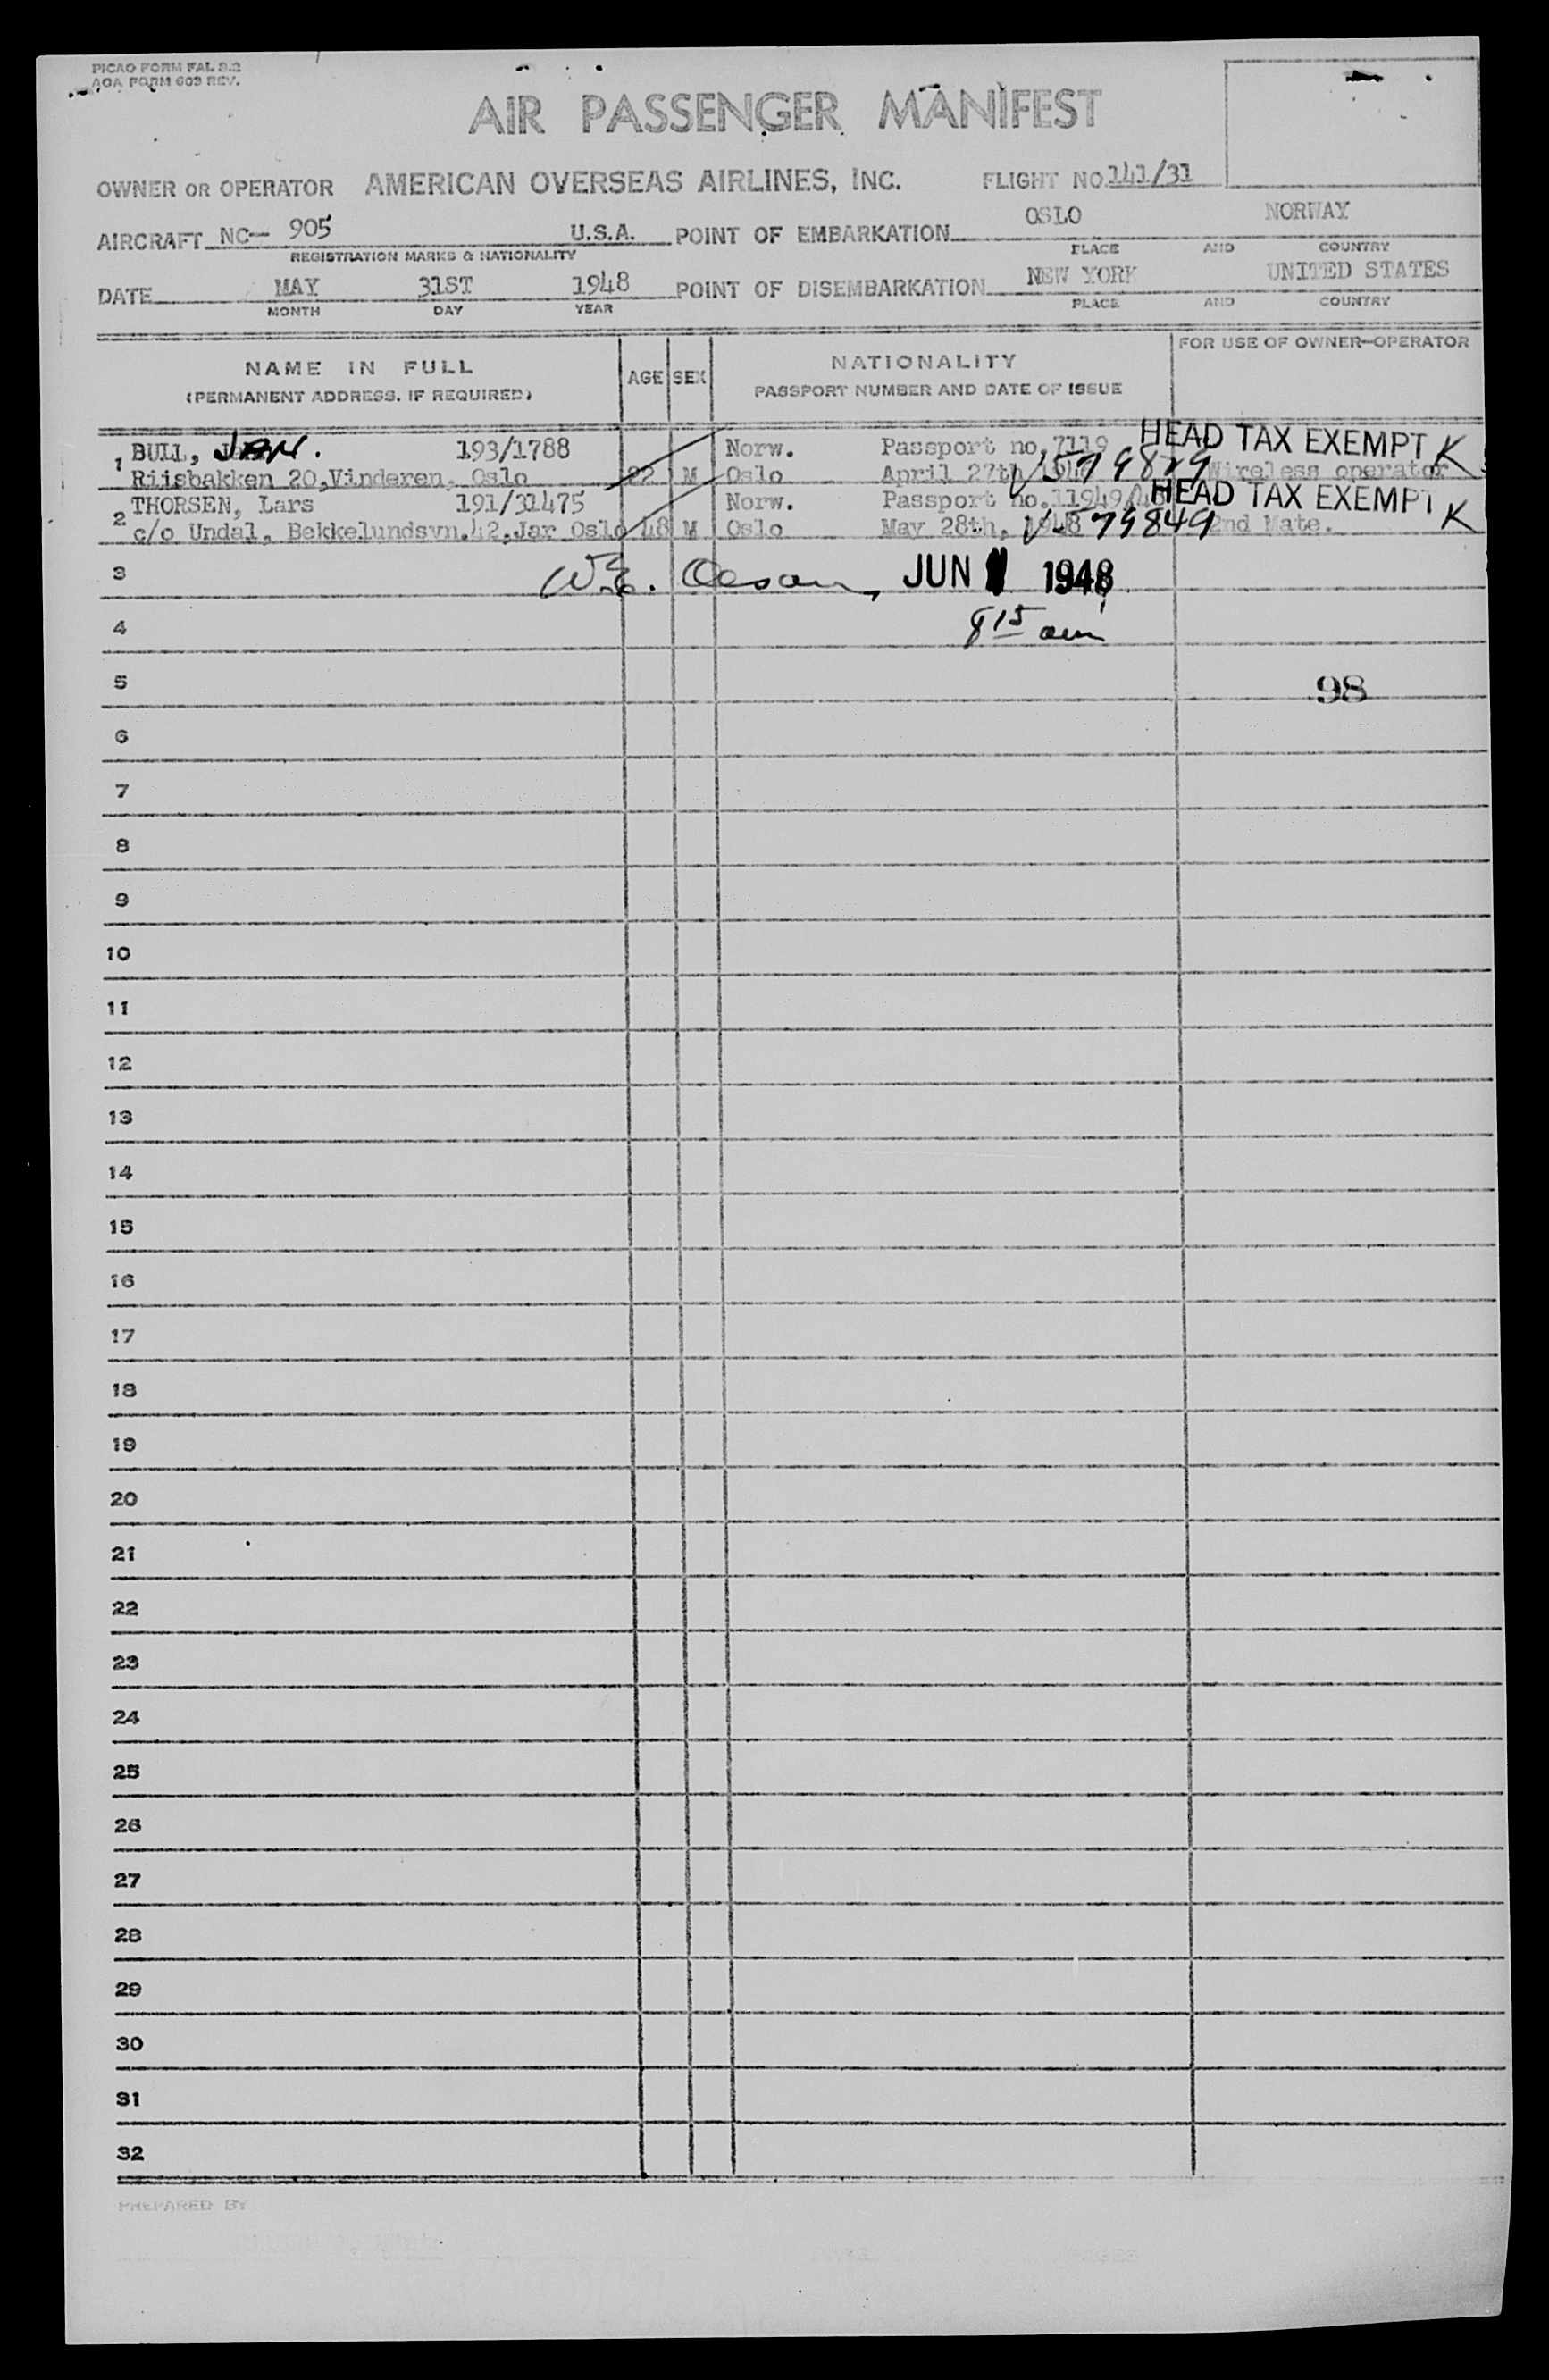 PICAO FORM FAL 2.2
AOA FORM 603 REV.
AIR PASSENGER MANIFEST
OWNER OR OPERATOR AMERICAN OVERSEAS AIRLINES, INC. FLIGHT NO 141/31
AIRCRAFT NC- 905 U.S.A. POINT OF EMBARKATION OSLO NORWAY
REGISTRATION MARKS & NATIONALITY PLACE AND COUNTRY
DATE MAY 31ST 1948 POINT OF DISEMBARKATION NEW YORK UNITED STATES
MONTH DAY YEAR PLACE AND COUNTRY
NAME IN FULL AGE SEX NATIONALITY FOR USE OF OWNER-OPERATOR
(PERMANENT ADDRESS, IF REQUIRED) PASSPORT NUMBER AND DATE OF ISSUE
1 BULL, JAN. 193/1788 Norw. Passport no. 7119 HEAD TAX EXEMPT K
Riisbakken 20, Vinderen, Oslo 22 M Oslo April 27th Wireless operator
2 THORSEN, Lars 191/31475 Norw. Passport no. 11949/48 HEAD TAX EXEMPT K
c/o Undal, Bekkelundsvn. 42, Jar Oslo 48 M Oslo May 28th, 1948 V579849 2nd Mate.
3 JUN 1 1948
4 8 15 am
5 98
6
7
8
9
10
11
12
13
14
15
16
17
18
19
20
21
22
23
24
25
26
27
28
29
30
31
32
PREPARED BY